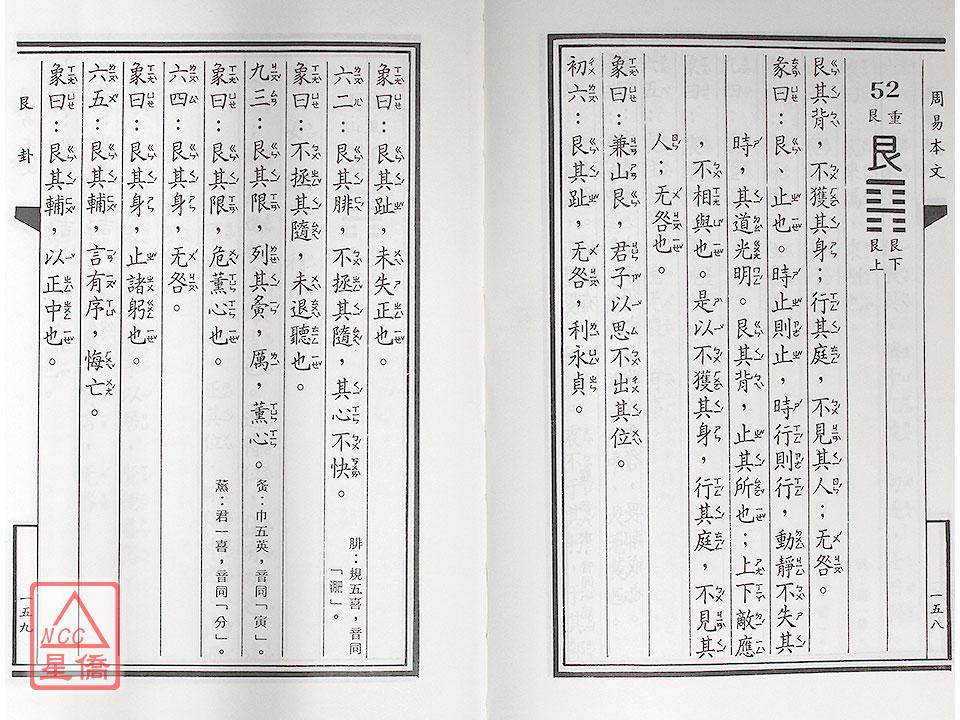 周易本文
一五八
52
重艮
艮
艮下
艮上
艮其背，不獲其身；行其庭，不見其人；无咎。
彖曰：艮、止也。時止則止，時行則行，動靜不失其
時，其道光明。艮其背，止其所也；上下敵應
，不相與也。是以不獲其身，行其庭，不見其
人；无咎也。
象曰：兼山艮，君子以思不出其位。
初六：艮其趾，无咎，利永貞。
象曰：艮其趾，未失正也。
六二：艮其腓，不拯其隨，其心不快。
腓：規五喜，音同
「淝」。
象曰：不拯其隨，未退聽也。
九三：艮其限，列其夤，厲，薰心。
夤：巾五英，音同「寅」。
薰：君一喜，音同「分」。
象曰：艮其限，危薰心也。
六四：艮其身，无咎。
象曰：艮其身，止諸躬也。
六五：艮其輔，言有序，悔亡。
象曰：艮其輔，以正中也。
艮卦
一五九
NCC
星僑